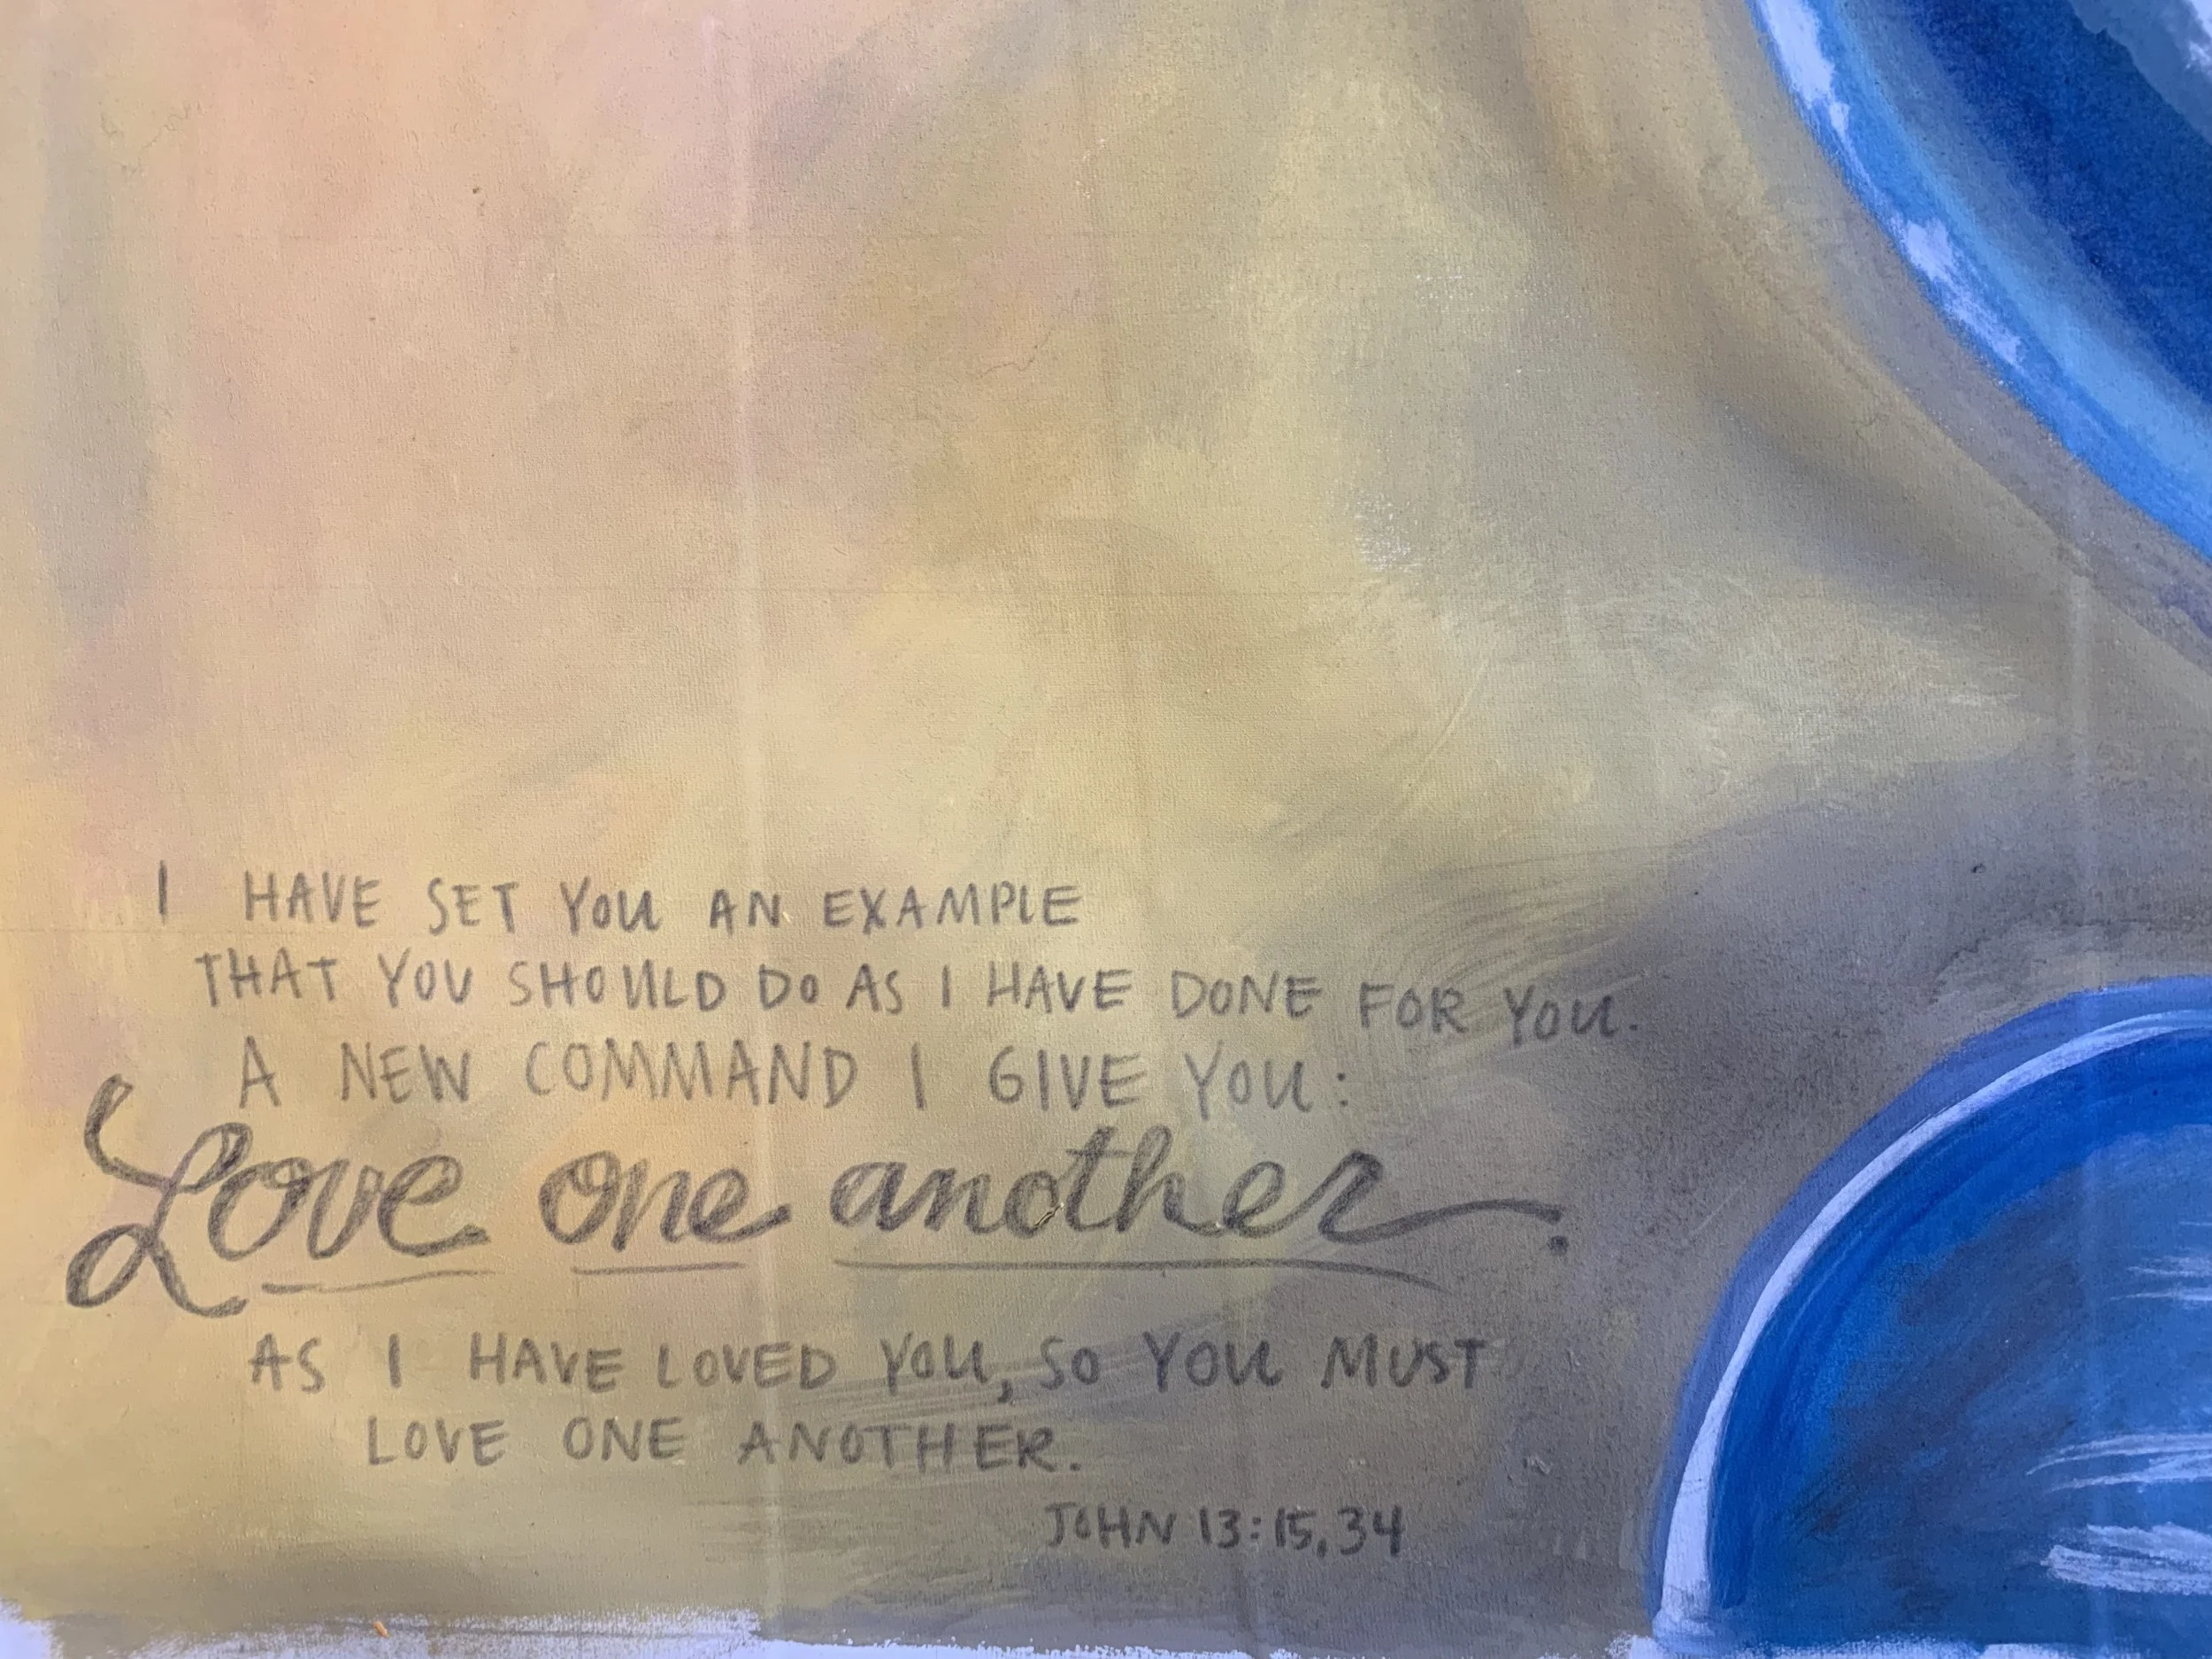 I HAVE SET YOU AN EXAMPLE
THAT YOU SHOULD DO AS I HAVE DONE FOR YOU.
A NEW COMMAND I GIVE YOU:
Love one another.
AS I HAVE LOVED YOU, SO YOU MUST
LOVE ONE ANOTHER.
JOHN 13:15,34